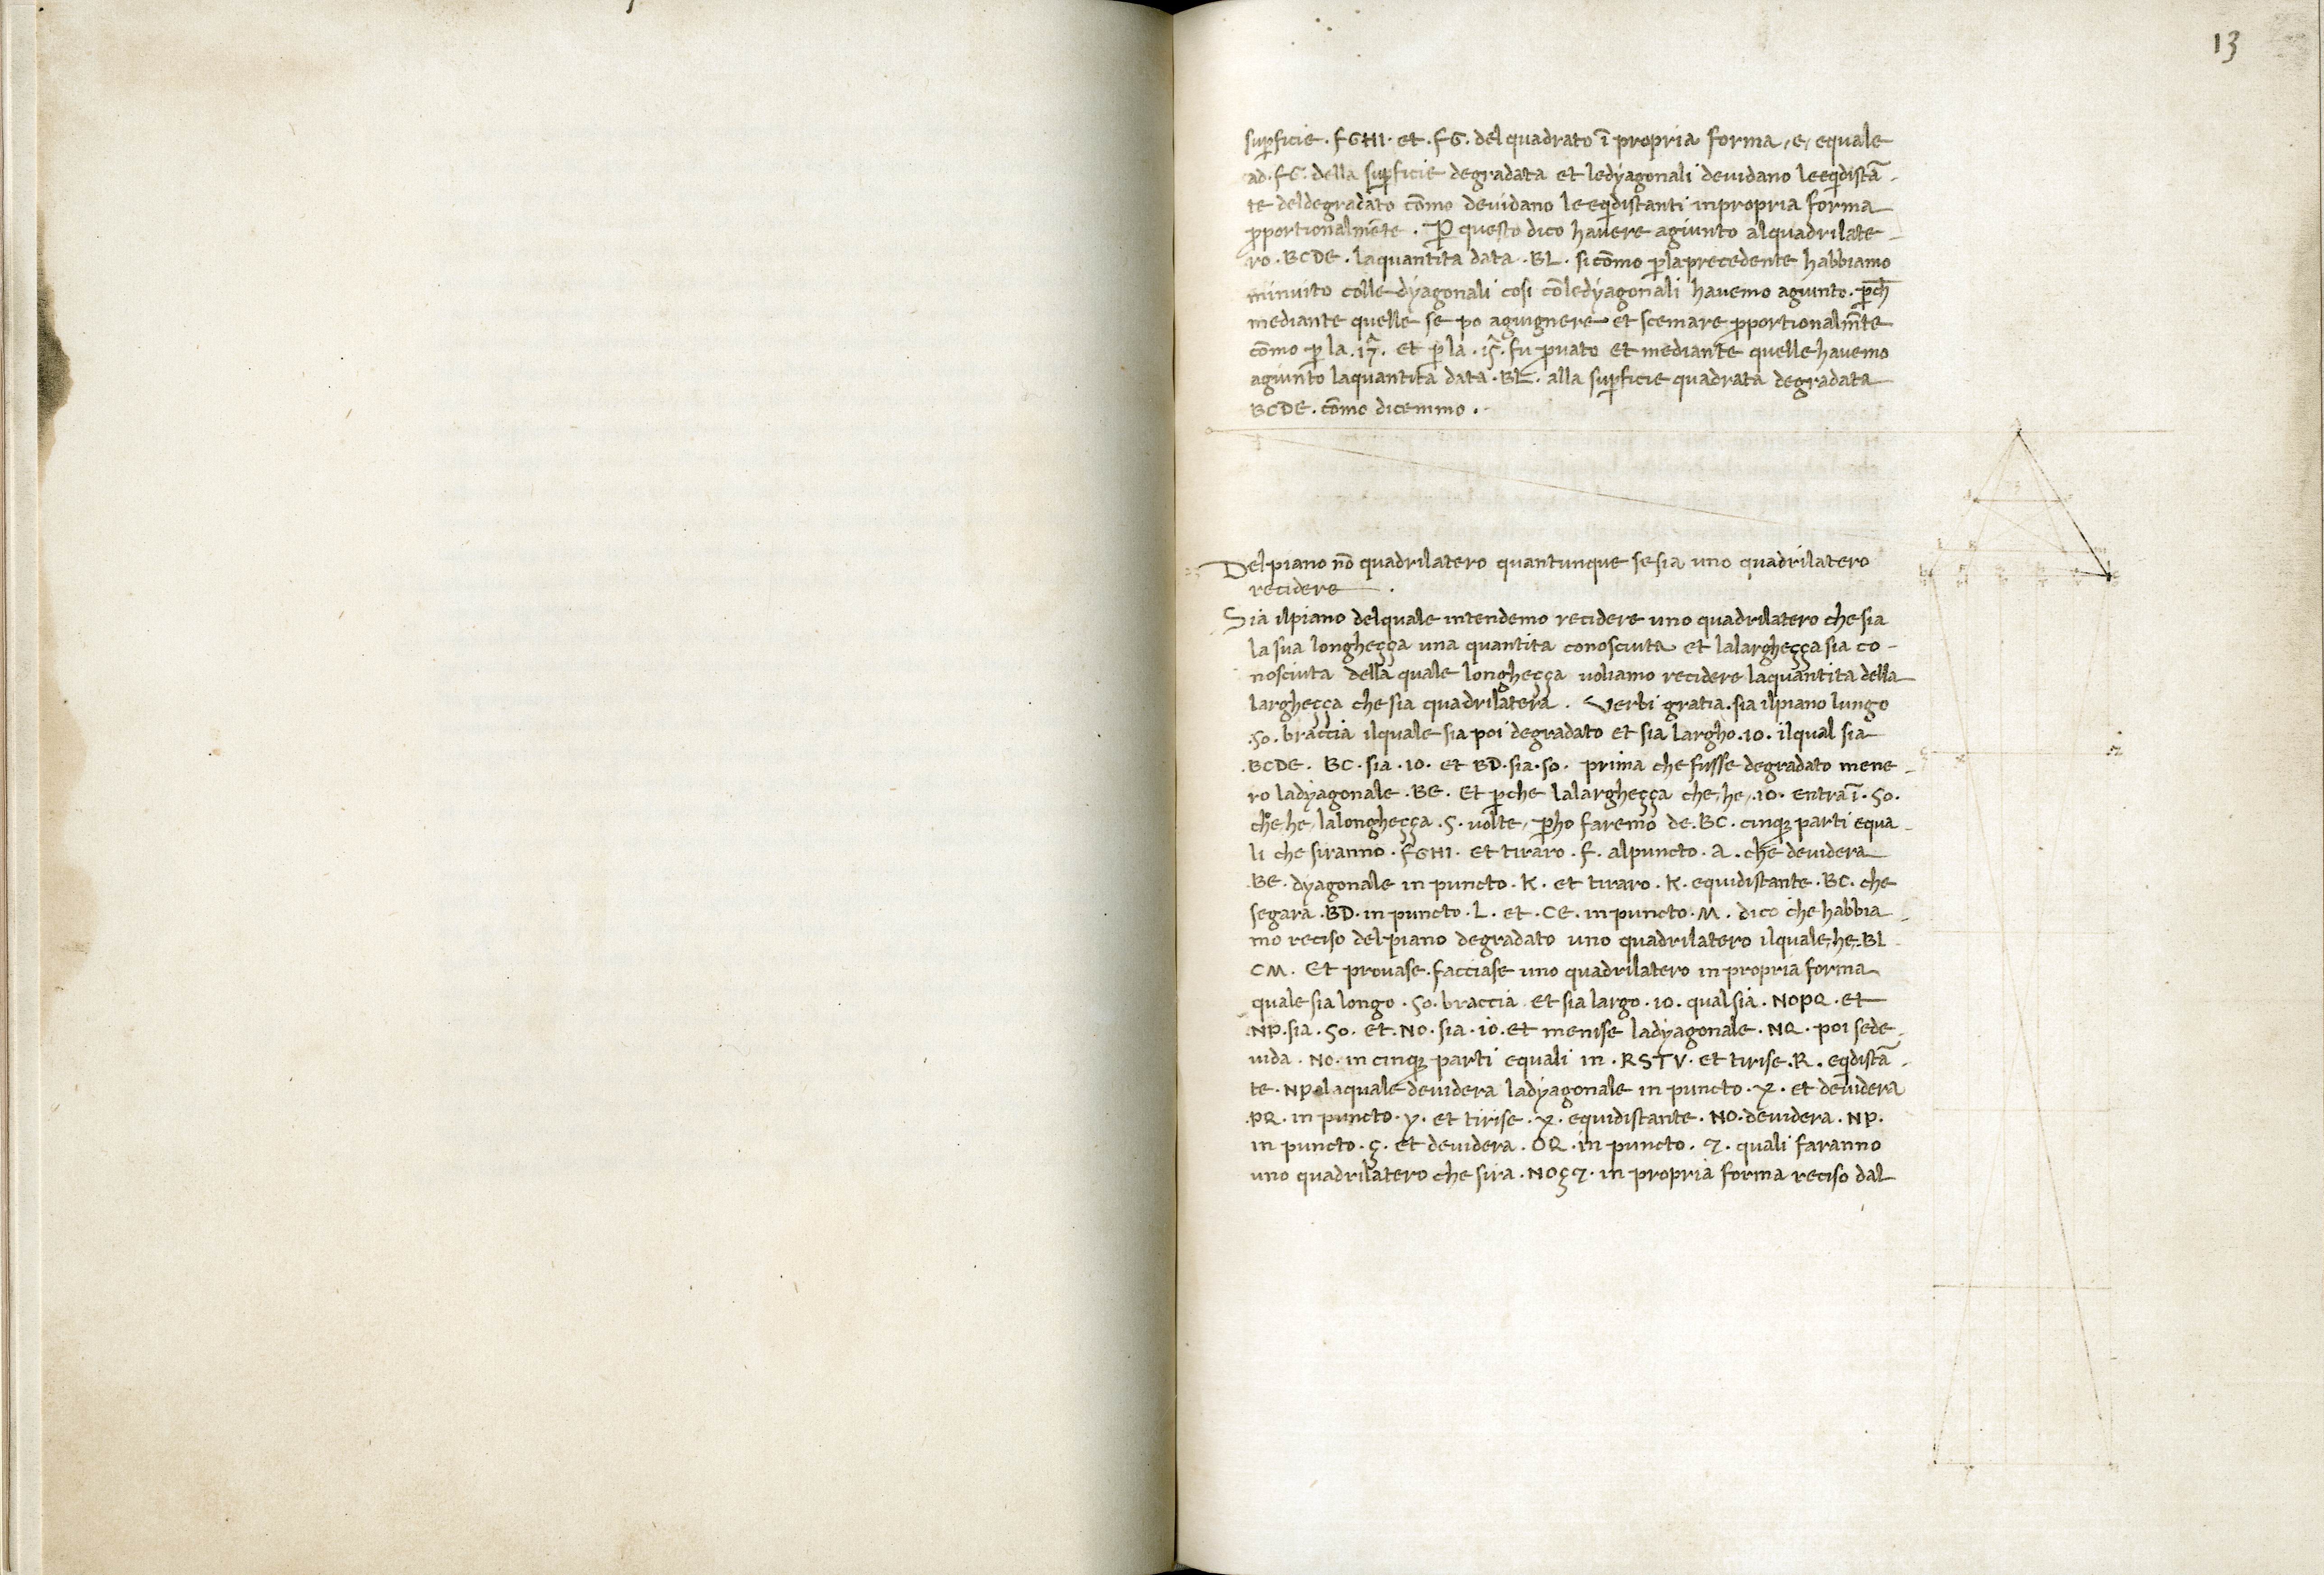 13
sup̱ficie · FGHI · et · FG · del quadrato ī propria forma, e, equale
ad · FG · della sup̱ficie degradata et ledyagonali devidano leeq̄distā-
te deldegradato cōmo devidano leeq̄distanti inpropria forma
p̱portionalmēte . P̱ questo dico havere agiunto alquadrilate-
ro · BCDE · laquantita data · BL · sicōmo p̱ laprecedente habbiamo
minuito colle dyagonali cosi cōledyagonali havemo agiunto . p̱ch̄
mediante quelle se po agiugnere et scemare p̱portionalm̄te
cōmo p̱ la · 17ª · et p̱ la · 15ª · fu p̱vato et mediante quelle havemo
agiunto laquantita data · BL · alla sup̱ficie quadrata degradata
BCDE · cōmo dicemmo .
Del piano nō quadrilatero quantunque sesia uno quadrilatero
recidere .
Sia ilpiano delquale intendemo recidere uno quadrilatero che sia
la sua longheçça una quantita conosciuta et lalargheçça sia co-
nosciuta della quale longheçça voliamo recidere laquantita della
largheçça che sia quadrilatera . Verbi gratia . sia ilpiano lungo
· 50 · braccia ilquale sia poi degradato et sia largho · 10 · ilqual sia
· BCDE · BC · sia · 10 · et BD · sia · 50 · prima che fusse degradato mene-
ro ladyagonale · BE · Et p̱che lalargheçça che, he, · 10 · entra ī · 50 ·
che, he, lalongheçça · 5 · volte, p̱ho faremo de · BC · cinq; parti equa-
li che siranno · FGHI · et tiraro · F · alpuncto · A · che devidera
BE · dyagonale in puncto · K · et tiraro · K · equidistante · BC · che
segara · BD · in puncto · L · et · CE · in puncto · M · dico che habbia-
mo reciso del piano degradato uno quadrilatero ilquale, he, · BL
CM · Et provase . facciase uno quadrilatero in propria forma
quale sia longo · 50 · braccia et sia largo · 10 · qual sia · NOPQ · et
· NP · sia · 50 · et · NO · sia · 10 · et menise ladyagonale · NQ · poi sede-
vida · NO · in cinq; parti equali in · RSTV · et tirise · R · eq̄distā-
te · NP · laquale devidera ladyagonale in puncto · X · et devidera
· PQ · in puncto · y · et tirise · X · equidistante · NO · devidera · NP ·
in puncto · ç · et devidera · OQ · in puncto · 7 · quali faranno
uno quadrilatero che sira · NOç7 · in propria forma reciso dal